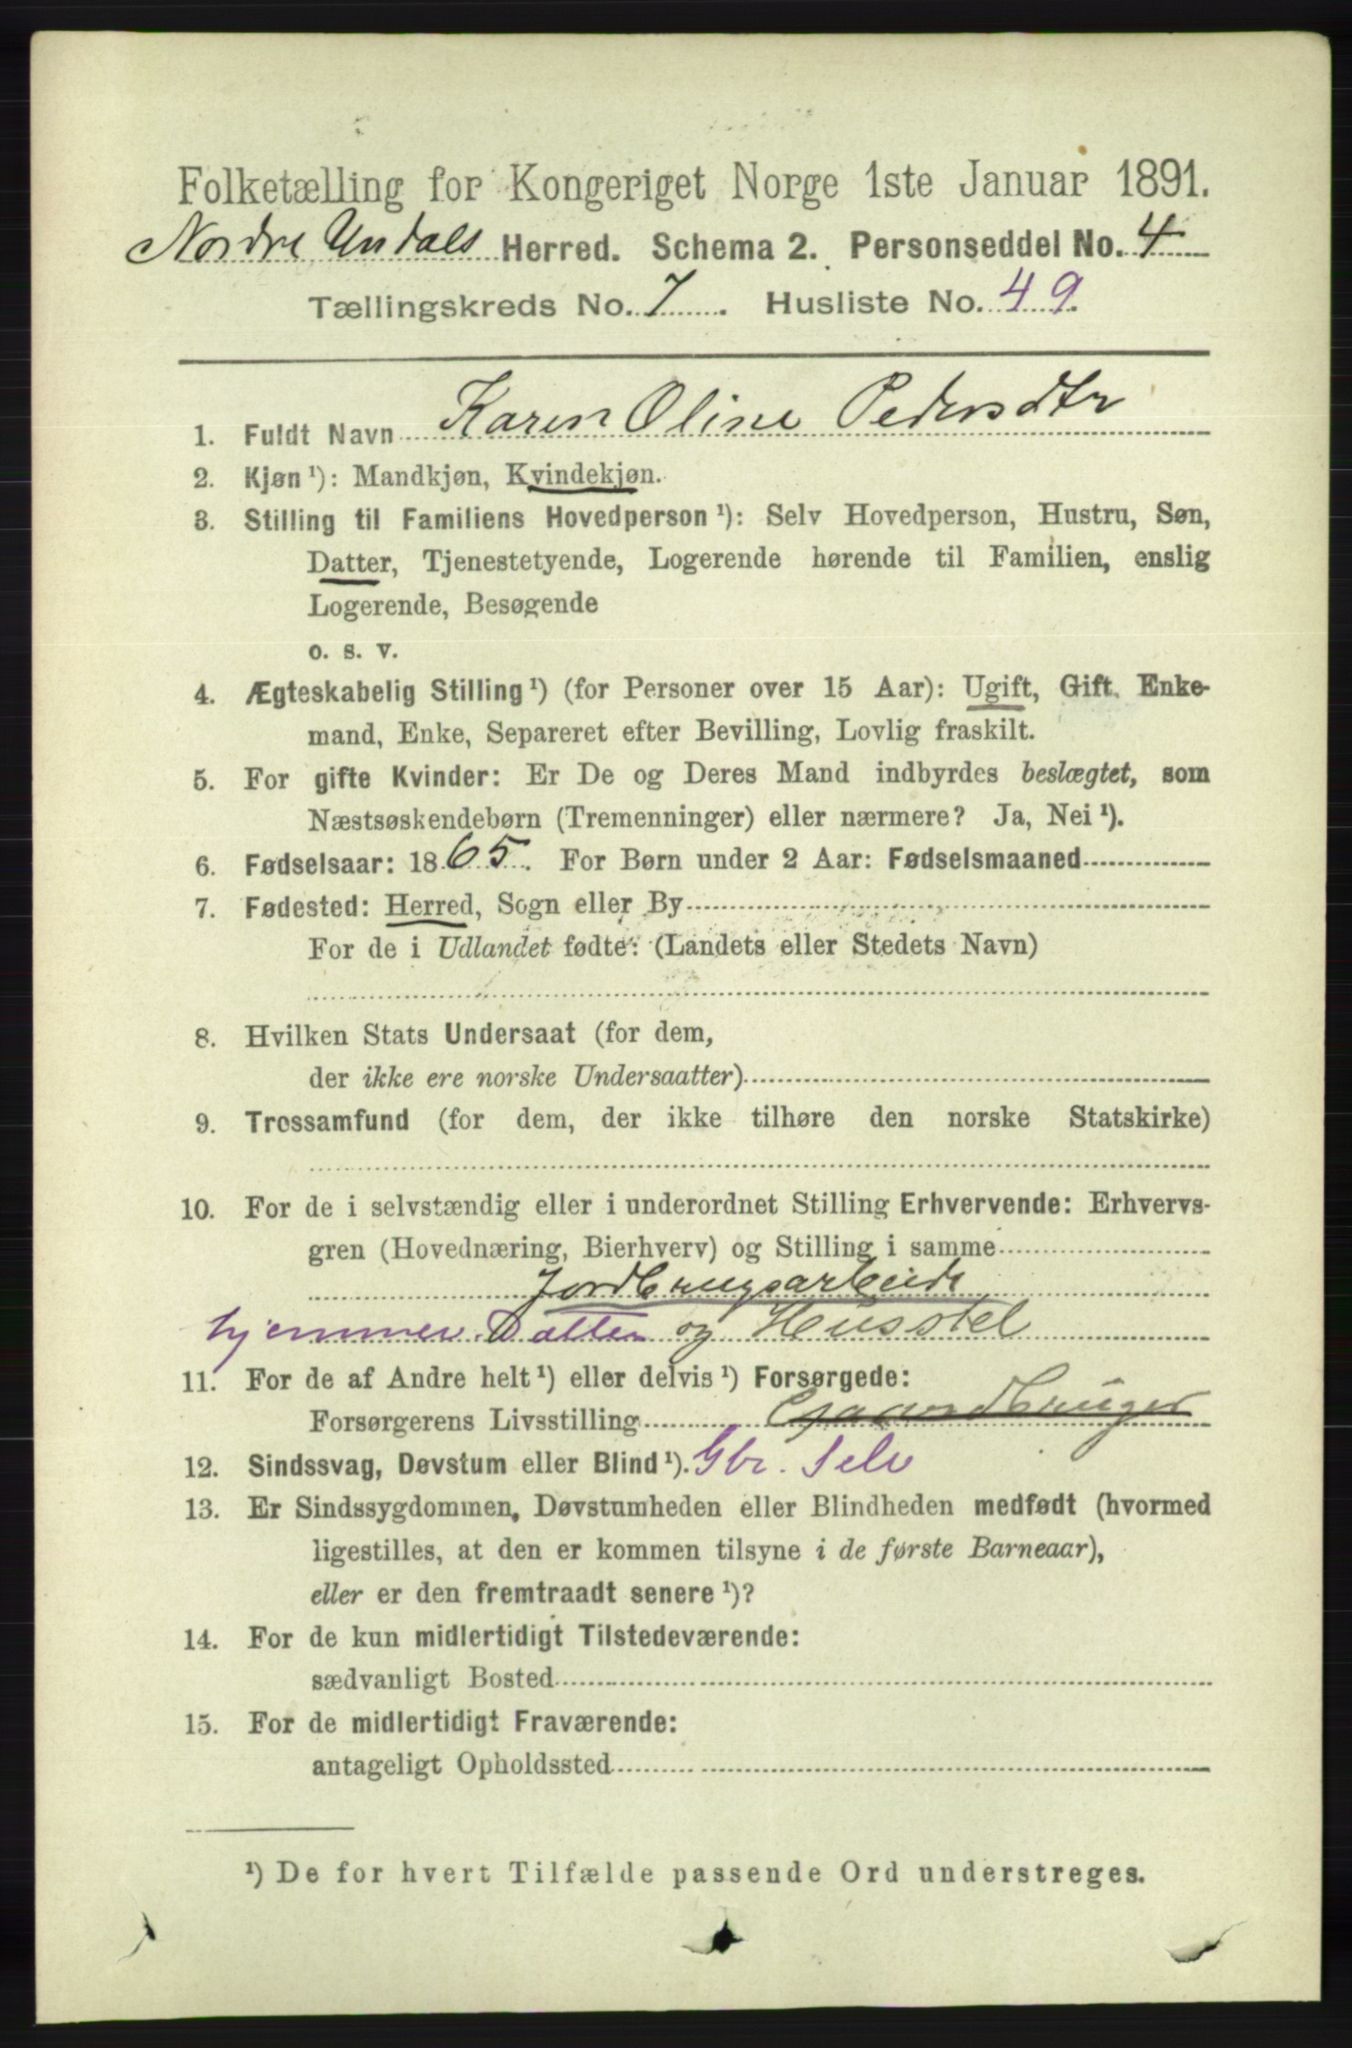 Folketælling for Kongeriget Norge 1ste Januar 1891.
Nordre Undals Herred. Schema 2. Personseddel No. 4
Tællingskreds No. 7. Husliste No. 49.
1. Fuldt Navn Karen Oline Pedersdtr
2. Kjøn¹): Mandkjøn, Kvindekjøn.
3. Stilling til Familiens Hovedperson¹): Selv Hovedperson, Hustru, Søn,
Datter, Tjenestetyende, Logerende hørende til Familien, enslig
Logerende, Besøgende
o. s. v.
4. Ægteskabelig Stilling¹) (for Personer over 15 Aar): Ugift, Gift, Enke-
mand, Enke, Separeret efter Bevilling, Lovlig fraskilt.
5. For gifte Kvinder: Er De og Deres Mand indbyrdes beslægtet, som
Næstsøskendebørn (Tremenninger) eller nærmere? Ja, Nei¹).
6. Fødselsaar: 1865. For Børn under 2 Aar: Fødselsmaaned
7. Fødested: Herred, Sogn eller By
For de i Udlandet fødte: (Landets eller Stedets Navn)
8. Hvilken Stats Undersaat (for dem,
der ikke ere norske Undersaatter)
9. Trossamfund (for dem, der ikke tilhøre den norske Statskirke)
10. For de i selvstændig eller i underordnet Stilling Erhvervende: Erhvervs-
gren (Hovednæring, Bierhverv) og Stilling i samme
Jordbrugsarbeide
hjemmev. Datter og Husstel
11. For de af Andre helt¹) eller delvis¹) Forsørgede:
Forsørgerens Livsstilling Gaardbruger
12. Sindssvag, Døvstum eller Blind¹). Gbr. Selv
13. Er Sindssygdommen, Døvstumheden eller Blindheden medfødt (hvormed
ligestilles, at den er kommen tilsyne i de første Barneaar),
eller er den fremtraadt senere¹)?
14. For de kun midlertidigt Tilstedeværende:
sædvanligt Bosted
15. For de midlertidigt Fraværende:
antageligt Opholdssted
¹) De for hvert Tilfælde passende Ord understreges.